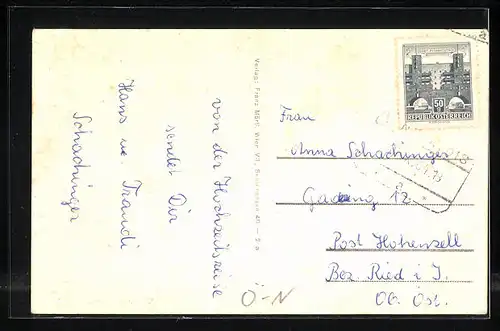 von der Hochzeitsreise
sendet Dir
Hans u. Traudi
Schachinger
Verlag: Franz Mörtl, Wien VI.
Frau
Anna Schachinger
12
Post Hohenzell
Bez. Ried i. I.
Ob. Öst.
50
REPUBLIK ÖSTERREICH
Ö-N